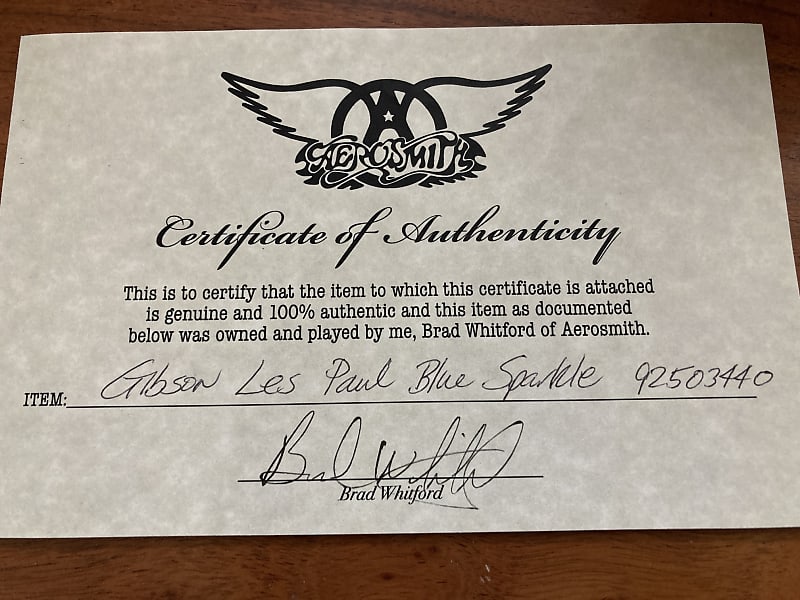 AEROSMITH
Certificate of Authenticity
This is to certify that the item to which this certificate is attached
is genuine and 100% authentic and this item as documented
below was owned and played by me, Brad Whitford of Aerosmith.
ITEM: Gibson Les Paul Blue Sparkle 92503440
Brad Whitford
Brad Whitford